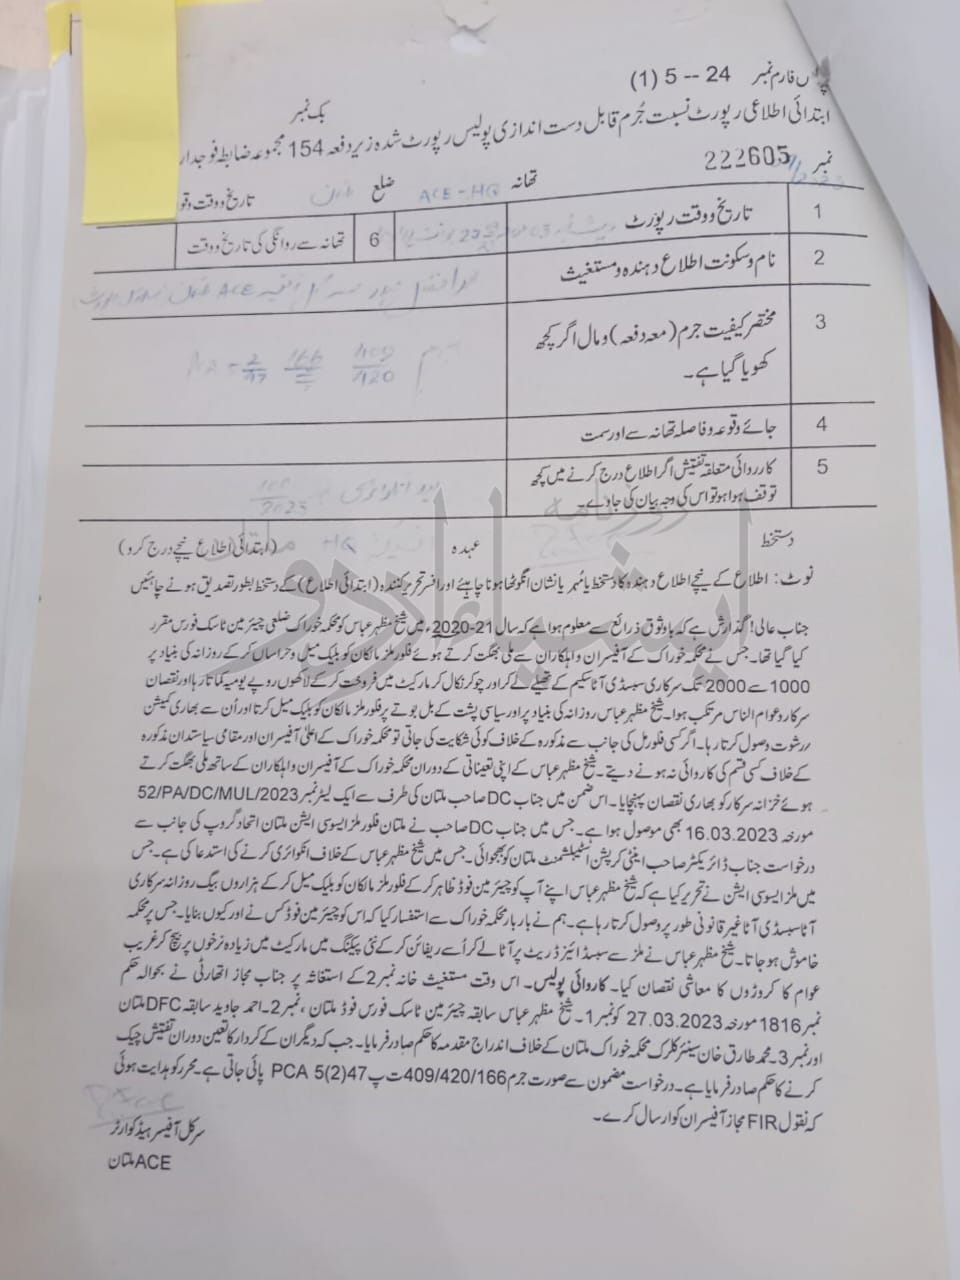 فارم نمبر 24 -- 5 (1)
بک نمبر
ابتدائی اطلاعی رپورٹ نسبت جُرم قابل دست اندازی پولیس رپورٹ شدہ زیر دفعہ 154 مجموعہ ضابطہ فوجدار
نمبر 222605
تھانہ ACE-HQ ضلع ملتان تاریخ و وقت وقو
1 تاریخ و وقت رپورٹ
6 تھانہ سے روانگی کی تاریخ و وقت
2 نام و سکونت اطلاع دہندہ و مستغیث
3 مختصر کیفیت جرم (معہ دفعہ) و مال اگر کچھ
کھویا گیا ہے۔
409/420 166
4 جائے وقوعہ و فاصلہ تھانہ سے اور سمت
5 کارروائی متعلقہ تفتیش اگر اطلاع درج کرنے میں کچھ
توقف ہوا ہو تو اس کی وجہ بیان کی جاوے۔
دستخط عہدہ (ابتدائی اطلاع نیچے درج کرو)
نوٹ: اطلاع کے نیچے اطلاع دہندہ کا دستخط یا مُہر یا نشان انگوٹھا ہونا چاہیئے اور افسر تحریر کنندہ (ابتدائی اطلاع) کے دستخط بطور تصدیق ہونے چاہئیں
جناب عالی! گذارش ہے کہ باوثوق ذرائع سے معلوم ہوا ہے کہ سال 21-2020ء میں شیخ مظہر عباس کو محکمہ خوراک ضلعی چیئرمین ٹاسک فورس مقرر
کیا گیا تھا۔ جس نے محکمہ خوراک کے آفیسران و اہلکاران سے ملی بھگت کرتے ہوئے فلور ملز مالکان کو بلیک میل و حراساں کر کے روزانہ کی بنیاد پر
1000 سے 2000 تک سرکاری سبسڈی آٹا سکیم کے تھیلے لے کر اور چوکر نکال کر مارکیٹ میں فروخت کر کے لاکھوں روپے یومیہ کماتا رہا اور نقصان
سرکار و عوام الناس مرتکب ہوا۔ شیخ مظہر عباس روزانہ کی بنیاد پر اور سیاسی پشت کے بل بوتے پر فلور ملز مالکان کو بلیک میل کرتا اور اُن سے بھاری کمیشن
ر رشوت وصول کرتا رہا۔ اگر کسی فلور مل کی جانب سے مذکورہ کے خلاف کوئی شکایت کی جاتی تو محکمہ خوراک کے اعلیٰ آفیسران اور مقامی سیاستدان مذکورہ
کے خلاف کسی قسم کی کاروائی نہ ہونے دیتے۔ شیخ مظہر عباس کے اپنی تعیناتی کے دوران محکمہ خوراک کے آفیسران و اہلکاران کے ساتھ ملی بھگت کرتے
ہوئے خزانہ سرکار کو بھاری نقصان پہنچایا۔ اس ضمن میں جناب DC صاحب ملتان کی طرف سے ایک لیٹر نمبر 52/PA/DC/MUL/2023
مورخہ 16.03.2023 بھی موصول ہوا ہے۔ جس میں جناب DC صاحب نے ملتان فلور ملز ایسوسی ایشن ملتان اتحاد گروپ کی جانب سے
درخواست جناب ڈائریکٹر صاحب اینٹی کرپشن اسٹیبلشمنٹ ملتان کو بھجوائی۔ جس میں شیخ مظہر عباس کے خلاف انکوائری کرنے کی استدعا کی ہے۔ جس
میں ملز ایسوسی ایشن نے تحریر کیا ہے کہ شیخ مظہر عباس اپنے آپ کو چیئرمین فوڈ ظاہر کر کے فلور ملز مالکان کو بلیک میل کر کے ہزاروں بیگ روزانہ سرکاری
آٹا سبسڈی آٹا غیر قانونی طور پر وصول کرتا رہا ہے۔ ہم نے بار بار محکمہ خوراک سے استفسار کیا کہ اس کو چیئرمین فوڈ کس نے اور کیوں بنایا۔ جس پر محکمہ
خاموش ہو جاتا۔ شیخ مظہر عباس نے ملز سے سبسڈائیزڈ ریٹ پر آٹا لے کر اُسے ریفائن کر کے نئی پیکنگ میں مارکیٹ میں زیادہ نرخوں پر بیچ کر غریب
عوام کا کروڑوں کا معاشی نقصان کیا۔ کاروائی پولیس۔ اس وقت مستغیث خانہ نمبر 2 کے استغاثہ پر جناب مجاز اتھارٹی نے بحوالہ حکم
نمبر 1816 مورخہ 27.03.2023 کو نمبر 1۔ شیخ مظہر عباس سابقہ چیئرمین ٹاسک فورس فوڈ ملتان، نمبر 2۔ احمد جاوید سابقہ DFC ملتان
اور نمبر 3۔ محمد طارق خان سینئر کلرک محکمہ خوراک ملتان کے خلاف اندراج مقدمہ کا حکم صادر فرمایا۔ جب کہ دیگران کے کردار کا تعین دوران تفتیش چیک
کرنے کا حکم صادر فرمایا ہے۔ درخواست مضمون سے صورت جرم 409/420/166 ت پ 5(2)47 PCA پائی جاتی ہے۔ محرر کو ہدایت ہوئی
کہ نقول FIR مجاز آفیسران کو ارسال کرے۔
سرکل آفیسر ہیڈ کوارٹر
ACE ملتان